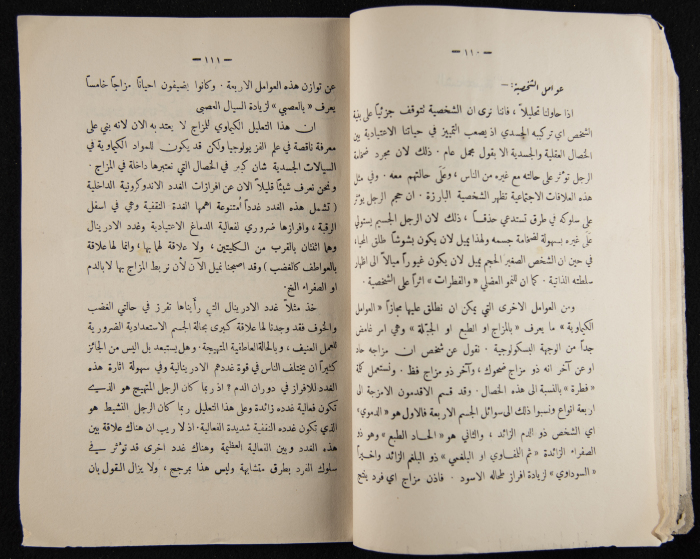 — ١١٠ —
عوامل الشخصية: —
اذا حاولنا تحليلاً ، فاننا نرى ان الشخصية تتوقف جزئياً على بنية
الشخص اي تركيبه الجسدي اذ يصعب التمييز في حياتنا الاعتيادية بين
الخصال العقلية والجسدية الا بقول مجمل عام . ذلك لان مجرد ضخامة
الرجل تؤثر على حالته مع غيره من الناس ، وعلى حالتهم معه . وفي مثل
هذه العلاقات الاجتماعية تظهر الشخصية البارزة . ان حجم الرجل يؤثر
على سلوكه في طرق تستدعي حذقاً ، ذلك لان الرجل الجسيم يستولي
على غيره بسهولة لضخامة جسمه ولهذا يميل لان يكون بشوشاً طلق المحيا،
في حين ان الشخص الصغير الحجم يميل لان يكون غيوراً ميالاً الى اظهار
سلطته الذاتية . كما ان للنمو العضلي « والفطرات » اثراً على الشخصية .
ومن العوامل الاخرى التي يمكن ان نطلق عليها مجازاً « العوامل
الكيماوية » ما يعرف « بالمزاج او الطبع او الجبلة » وهي امر غامض
جداً من الوجهة السيكولوجية . نقول عن شخص ان مزاجه حاد
او عن آخر انه ذو مزاج ضحوك، وآخر ذو مزاج فظ . ونستعمل كلمة
« فطرة » بالنسبة الى هذه الخصال . وقد قسم الاقدمون الامزجة الى
اربعة انواع ونسبوا ذلك الى سوائل الجسم الاربعة فالاول هو « الدموي »
اي الشخص ذو الدم الزائد ، والثاني هو « الحاد الطبع » وهو ذو
الصفراء الزائدة « ثم اللمفاوي او البلغمي » ذو البلغم الزائد واخيراً
« السوداوي » لزيادة افراز طحاله الاسود . فاذن مزاج اي فرد ينتج
— ١١١ —
عن توازن هذه العوامل الاربعة . وكانوا يضيفون احياناً مزاجاً خامساً
يعرف « بالعصبي » لزيادة السيال العصبى
ان هذا التعليل الكيماوي للمزاج لا يعتد به الان لانه بني على
معرفة ناقصة في علم الفزيولوجيا ولكن قد يكون للمواد الكيماوية في
السيالات الجسدية شان كبير في الخصال التي نعتبرها داخلة في المزاج .
ونحن نعرف شيئاً قليلاً الان عن افرازات الغدد الاندوكرونية الداخلية
( تشمل هذه الغدد غدداً متنوعة اهمها الغدة الثقفية وهي في اسفل
الرقبة ، وافرازها ضروري لفعالية الدماغ الاعتيادية وغدد الادرينال
وهما اثنتان بالقرب من الكليتين ، ولا علاقة لها بها ، وانما لها علاقة
بالعواطف كالغضب ) وقد اصبحنا نميل الآن لأن نربط المزاج بها لا بالدم
او الصفراء الخ .
خذ مثلاً غدد الادرينال التي رأيناها تفرز في حالتي الغضب
والخوف فقد وجدنا لها علاقة كبرى بحالة الجسم الاستعدادية الضرورية
للعمل العنيف ، وبالحالة العاطفية المتهيجة . وهل يستبعد بل اليس من الجائز
كثيراً ان يختلف الناس في قوة غددهم الادرينالية وفي سهولة اثارة هذه
الغدد للافراز في دوران الدم ؟ اذ ربما كان الرجل المتهيج هو الذي
تكون فعالية غدده زائدة وعلى هذا التعليل ربما كان الرجل النشيط هو
الذي تكون غدده الثقفية شديدة الفعالية. اذ لا ريب ان هناك علاقة بين
هذه الغدد وبين الفعالية العظيمة وهناك غدد اخرى قد تؤثر في
سلوك الفرد بطرق متشابهة وليس هذا بمرجح ، ولا يزال القول بان